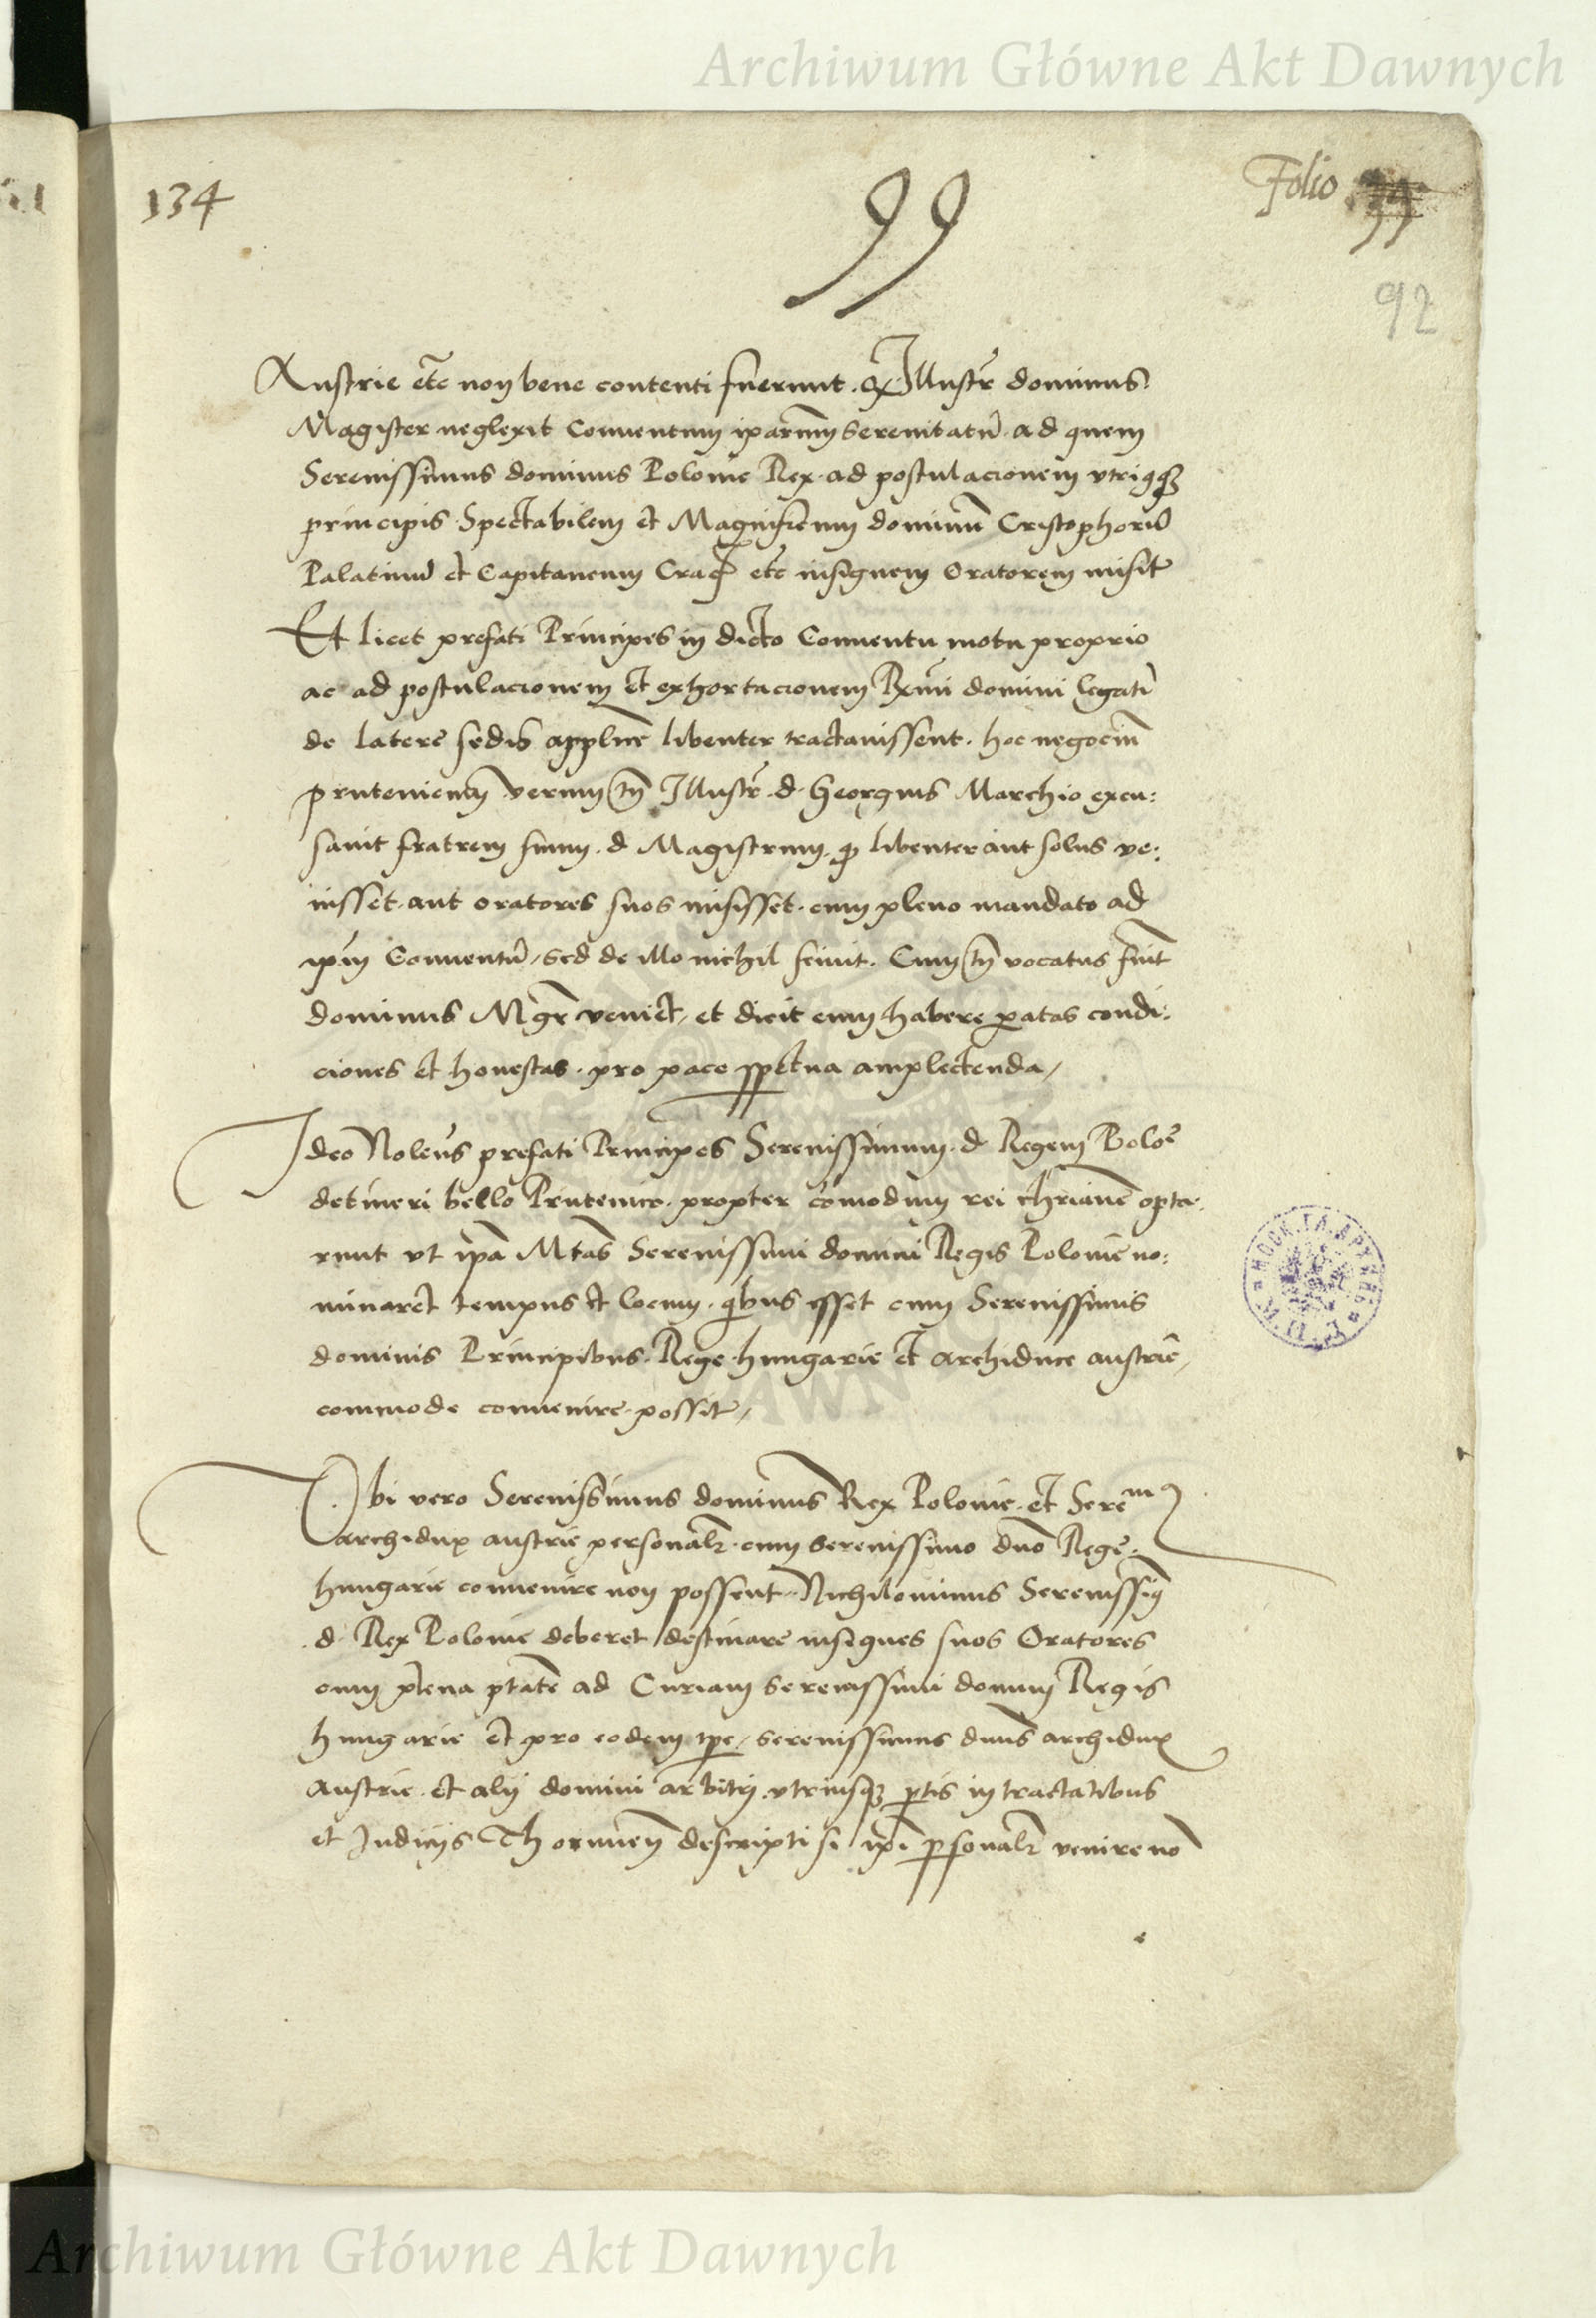 Archiwum Główne Akt Dawnych
134
99
Folio 99
92
Austrie etc non bene contenti fuerunt. q Illustr dominus
Magister neglexit Conuentum ipsarum serenitatu. ad quem
Serenissimus dominus Polonie Rex. ad postulacionem vtriusque
principis Spectabilem et Magnificum dominu Cristophoru
Palatinu et Capitaneum Crac etc insignem Oratorem misit
Et licet prefati Principes in dicto Conuentu motu proprio
ac ad postulacionem et exhortacionem Rmi domini legati
de latere sedis applice libenter tractauissent. hoc negociu
prutenicum verum tn Illustr. d. Georgius Marchio excu:
sauit fratrem suum. d Magistrum. q libenter aut solus ve:
nisset. aut oratores suos misisset. cum pleno mandato ad
ipsm Conuentu, sed de illo nichil sciuit. Cum tn vocatus fuit
dominus Mgr veniet, et dicit eum habere paratas condi:
ciones et honestas. pro pace perpetua amplectenda,
Ideo Nolens prefati Principes Serenissimum. d Regem Poloe
detineri bello Prutenico. propter comodum rei christiane opta:
runt vt ipsa Mtas Serenissimi domini Regis Polonie no:
minaret tempus et locum. quibus esset cum Serenissimis
dominis Principibus. Rege. hungarie et archiduce austrie,
commode conuenire. possit,
Vbi vero Serenissimus dominus Rex Polonie. et Serenmus
archidux austrie personalr. cum serenissimo duo Rege.
hungarie conuenire non possent. Nichilominus Serenissimus
. d. Rex Polonie deberet destinare insignes suos Oratores
cum plena ptate ad Curiam serenissimi domini Regis
hungarie et pro eodem tpe, serenissimus duns archidux
Austrie. et alij domini arbitri. vtriusque ptis in tractatibus
et Iudicijs Thorunen descripti si ipi personalr venire no
Archiwum Główne Akt Dawnych